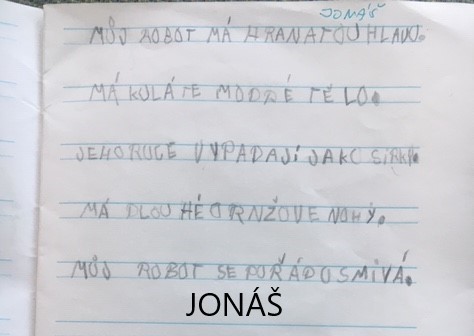 JONÁŠ
MŮJ ROBOT MÁ HRANATOU HLAVU.
MÁ KULÁTE MODRÉ TĚLO.
JEHO RUCE VYPADAJÍ JAKO SIRKY.
MÁ DLOUHÉ ORNŽOVE NOHY.
MŮJ ROBOT SE POŘÁD USMIVÁ.
JONÁŠ